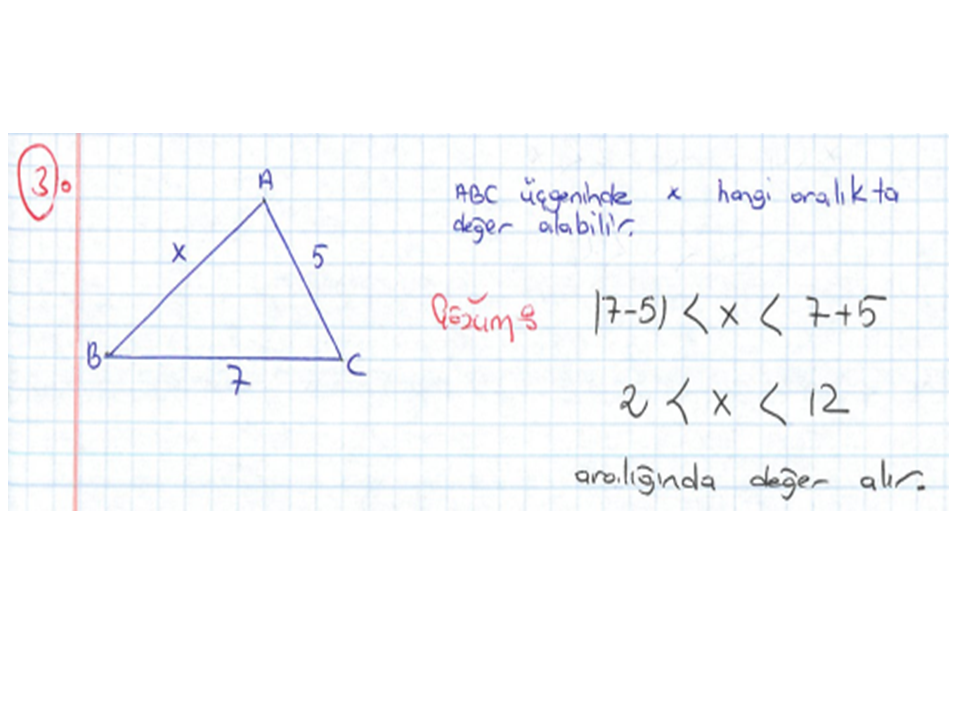 3.
A
x
5
B
7
C
ABC üçgeninde x hangi aralıkta
değer alabilir.
Çözüm: |7-5| < x < 7+5
2 < x < 12
aralığında değer alır.